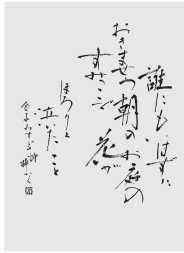 誰にもいはずに
朝のお庭の
すみっこで
花が
ほろりと
泣いたこと
金子みすゞ詩